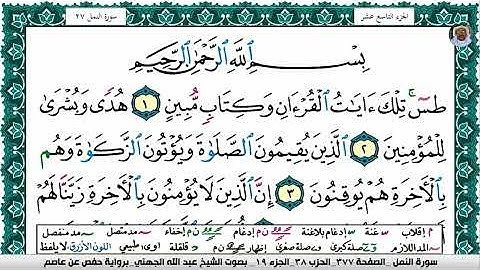 الجزء التاسع عشر
سورة النمل ٢٧
بِسْمِ ٱللَّهِ ٱلرَّحْمَٰنِ ٱلرَّحِيمِ
طسٓ ۚ تِلْكَ ءَايَٰتُ ٱلْقُرْءَانِ وَكِتَابٍ مُّبِينٍ ١ هُدًى وَبُشْرَىٰ
لِلْمُؤْمِنِينَ ٢ ٱلَّذِينَ يُقِيمُونَ ٱلصَّلَوٰةَ وَيُؤْتُونَ ٱلزَّكَوٰةَ وَهُم
بِٱلْءَاخِرَةِ هُمْ يُوقِنُونَ ٣ إِنَّ ٱلَّذِينَ لَا يُؤْمِنُونَ بِٱلْءَاخِرَةِ زَيَّنَّا لَهُمْ
م إقلاب غنة إدغام بلاغنة إدغام إخفاء مد متصل مد منفصل
المد اللازم صلة كبرى صلة صغرى إظهار قلقلة طبيعي اللون الأزرق لا يلفظ
سورة النمل ..الصفحة ٣٧٧..الحزب ٣٨..الجزء ١٩ .. بصوت الشيخ عبد الله الجهني..برواية حفص عن عاصم